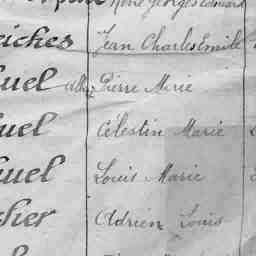 René Georges Edouard
eiches Jean Charles Emile
uel Pierre Marie
uel Célestin Marie
uel Louis Marie
cher Adrien Louis